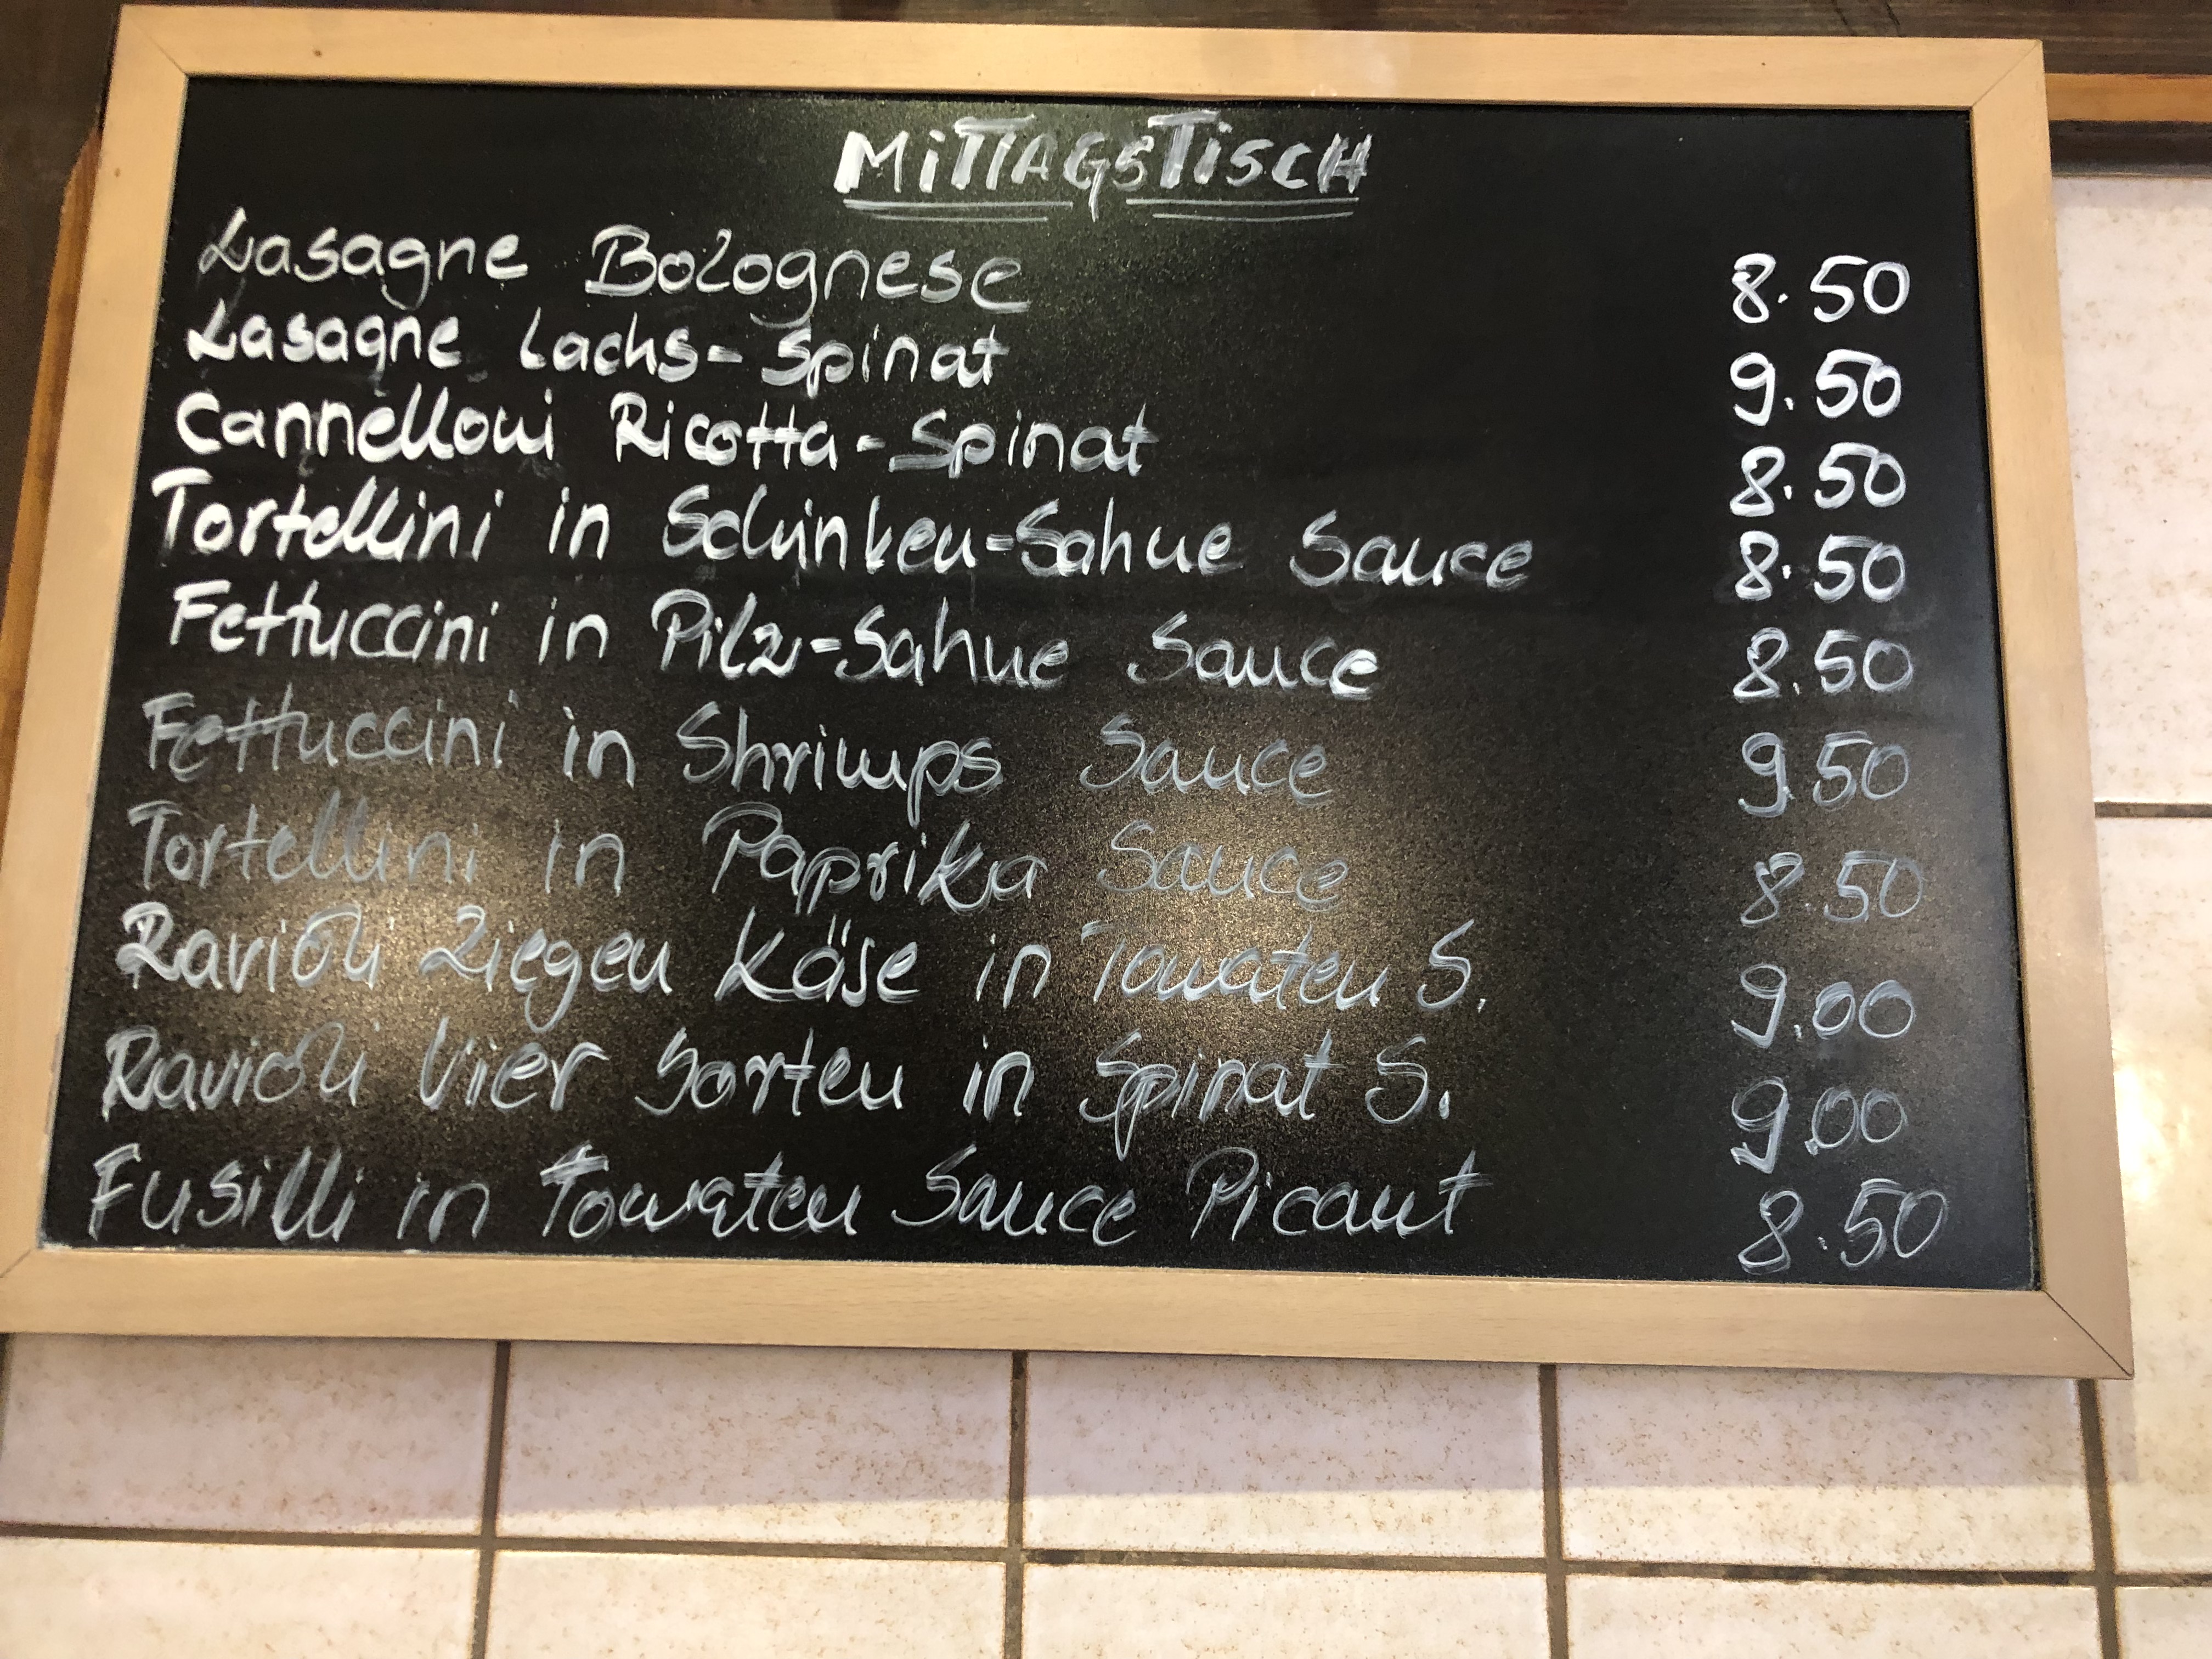 MiTTAGSTiSCH
Lasagne Bolognese 8.50
Lasagne Lachs-Spinat 9.50
Cannelloni Ricotta-Spinat 8.50
Tortellini in Schinken-Sahne Sauce 8.50
Fettuccini in Pilz-Sahne Sauce 8.50
Fettuccini in Shrimps Sauce 9.50
Tortellini in Paprika Sauce 8.50
Ravioli Ziegen Käse in Tomaten S. 9.00
Ravioli Vier Sorten in Spinat S. 9.00
Fusilli in Tomaten Sauce Picant 8.50